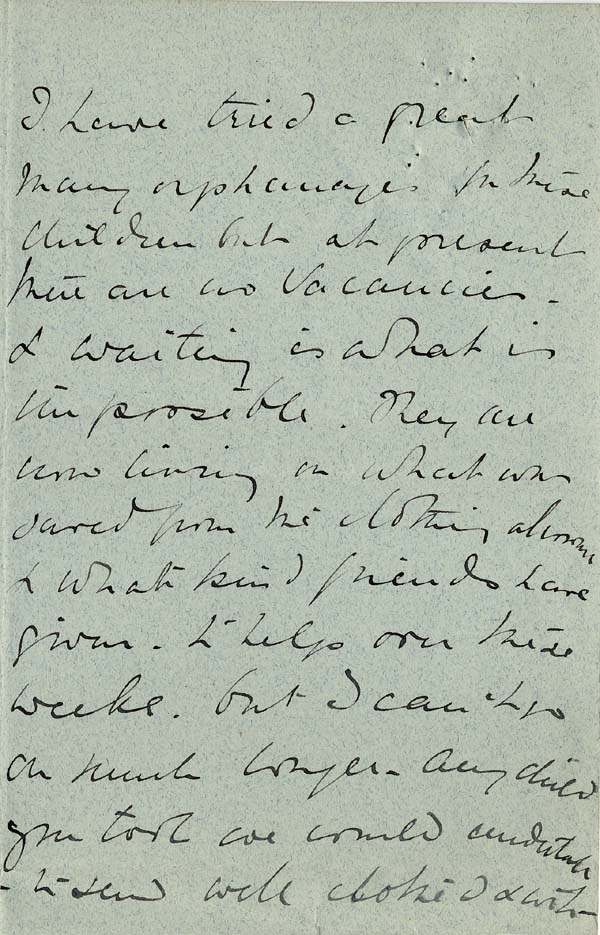 I have tried a great
many orphanages for these
children but at present
there are no vacancies -
& waiting is what is
impossible. They are
now living on what was
saved from the clothing allowance
& what kind friends have
given - to help over these
weeks. but I can't go
on much longer - Any child
you took we would undertake
- to send well clothed & with